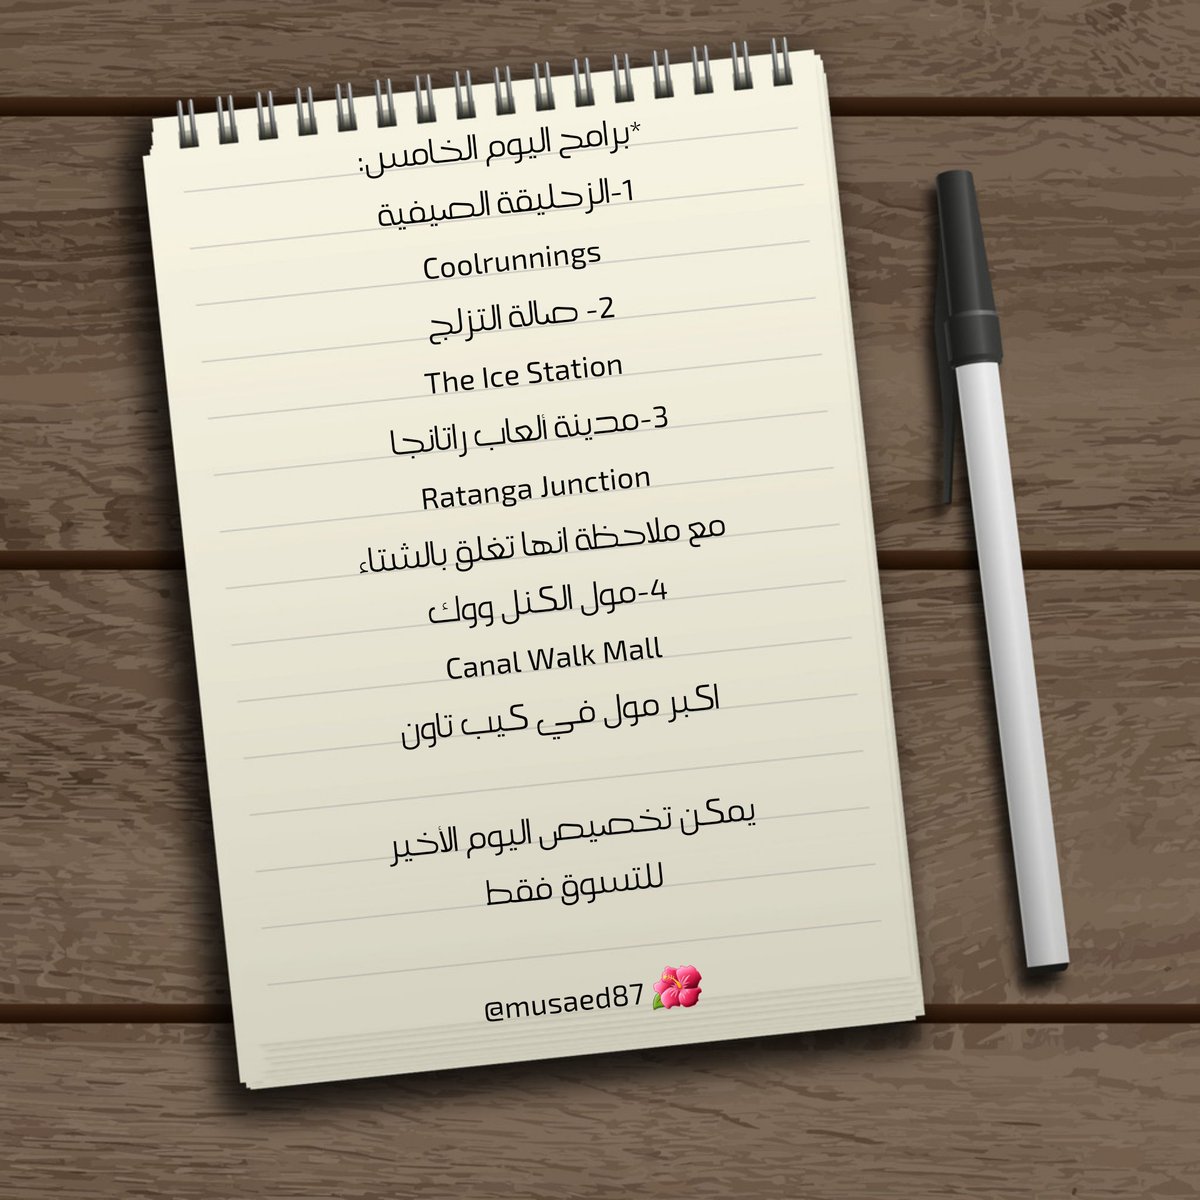 *برامج اليوم الخامس:
1-الزحليقة الصيفية
Coolrunnings
2- صالة التزلج
The Ice Station
3-مدينة ألعاب راتانجا
Ratanga Junction
مع ملاحظة انها تغلق بالشتاء
4-مول الكنل ووك
Canal Walk Mall
اكبر مول في كيب تاون
يمكن تخصيص اليوم الأخير
للتسوق فقط
@musaed87🌺